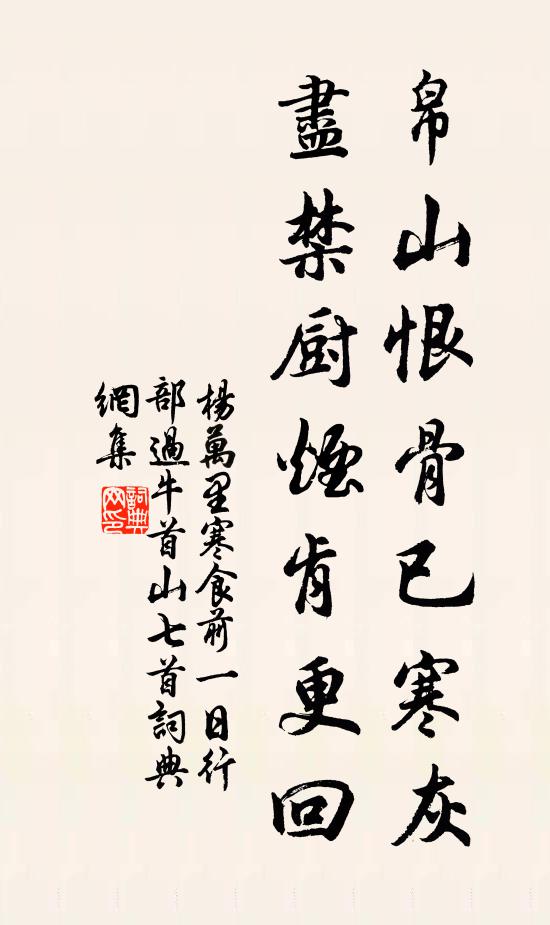 帛山恨骨已寒灰
盡禁厨煙肯更回
楊萬里寒食前一日行
部過牛首山七首詞典
網集
詞典
网印